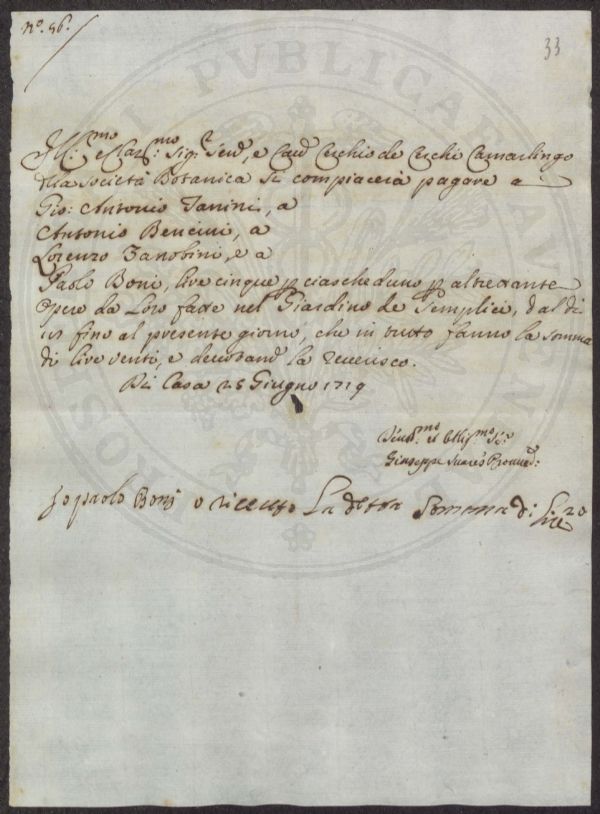 N.º 56.º
33
Ill:mo e Clar:mo Sig.r Sen.e, e Cav.e Cerchio de Cerchi Camarlingo
della Società Botanica Si compiacerà pagare a
Gio: Antonio Janini, a
Antonio Bencini, a
Lorenzo Zanobini, e a
Paolo Boni, lire cinque p ciascheduno p altretante
Opere da Loro fatte nel Giardino de Semplici, dal dì
fino al presente giorno, che in tutto fanno la somma
di lire venti, e la
Di Casa 28 Giugno 1719
Giuseppe Suares
Io paolo Boni o riceuto La detta Somma di Lire 20